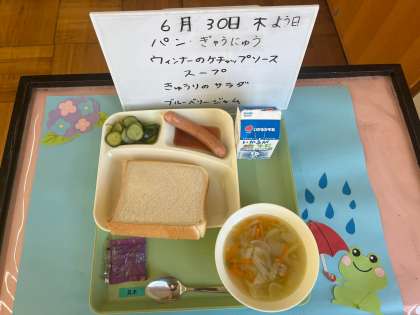 6月30日 木よう日
パン・ぎゅうにゅう
ウィンナーのケチャップソース
スープ
きゅうりのサラダ
ブルーベリージャム